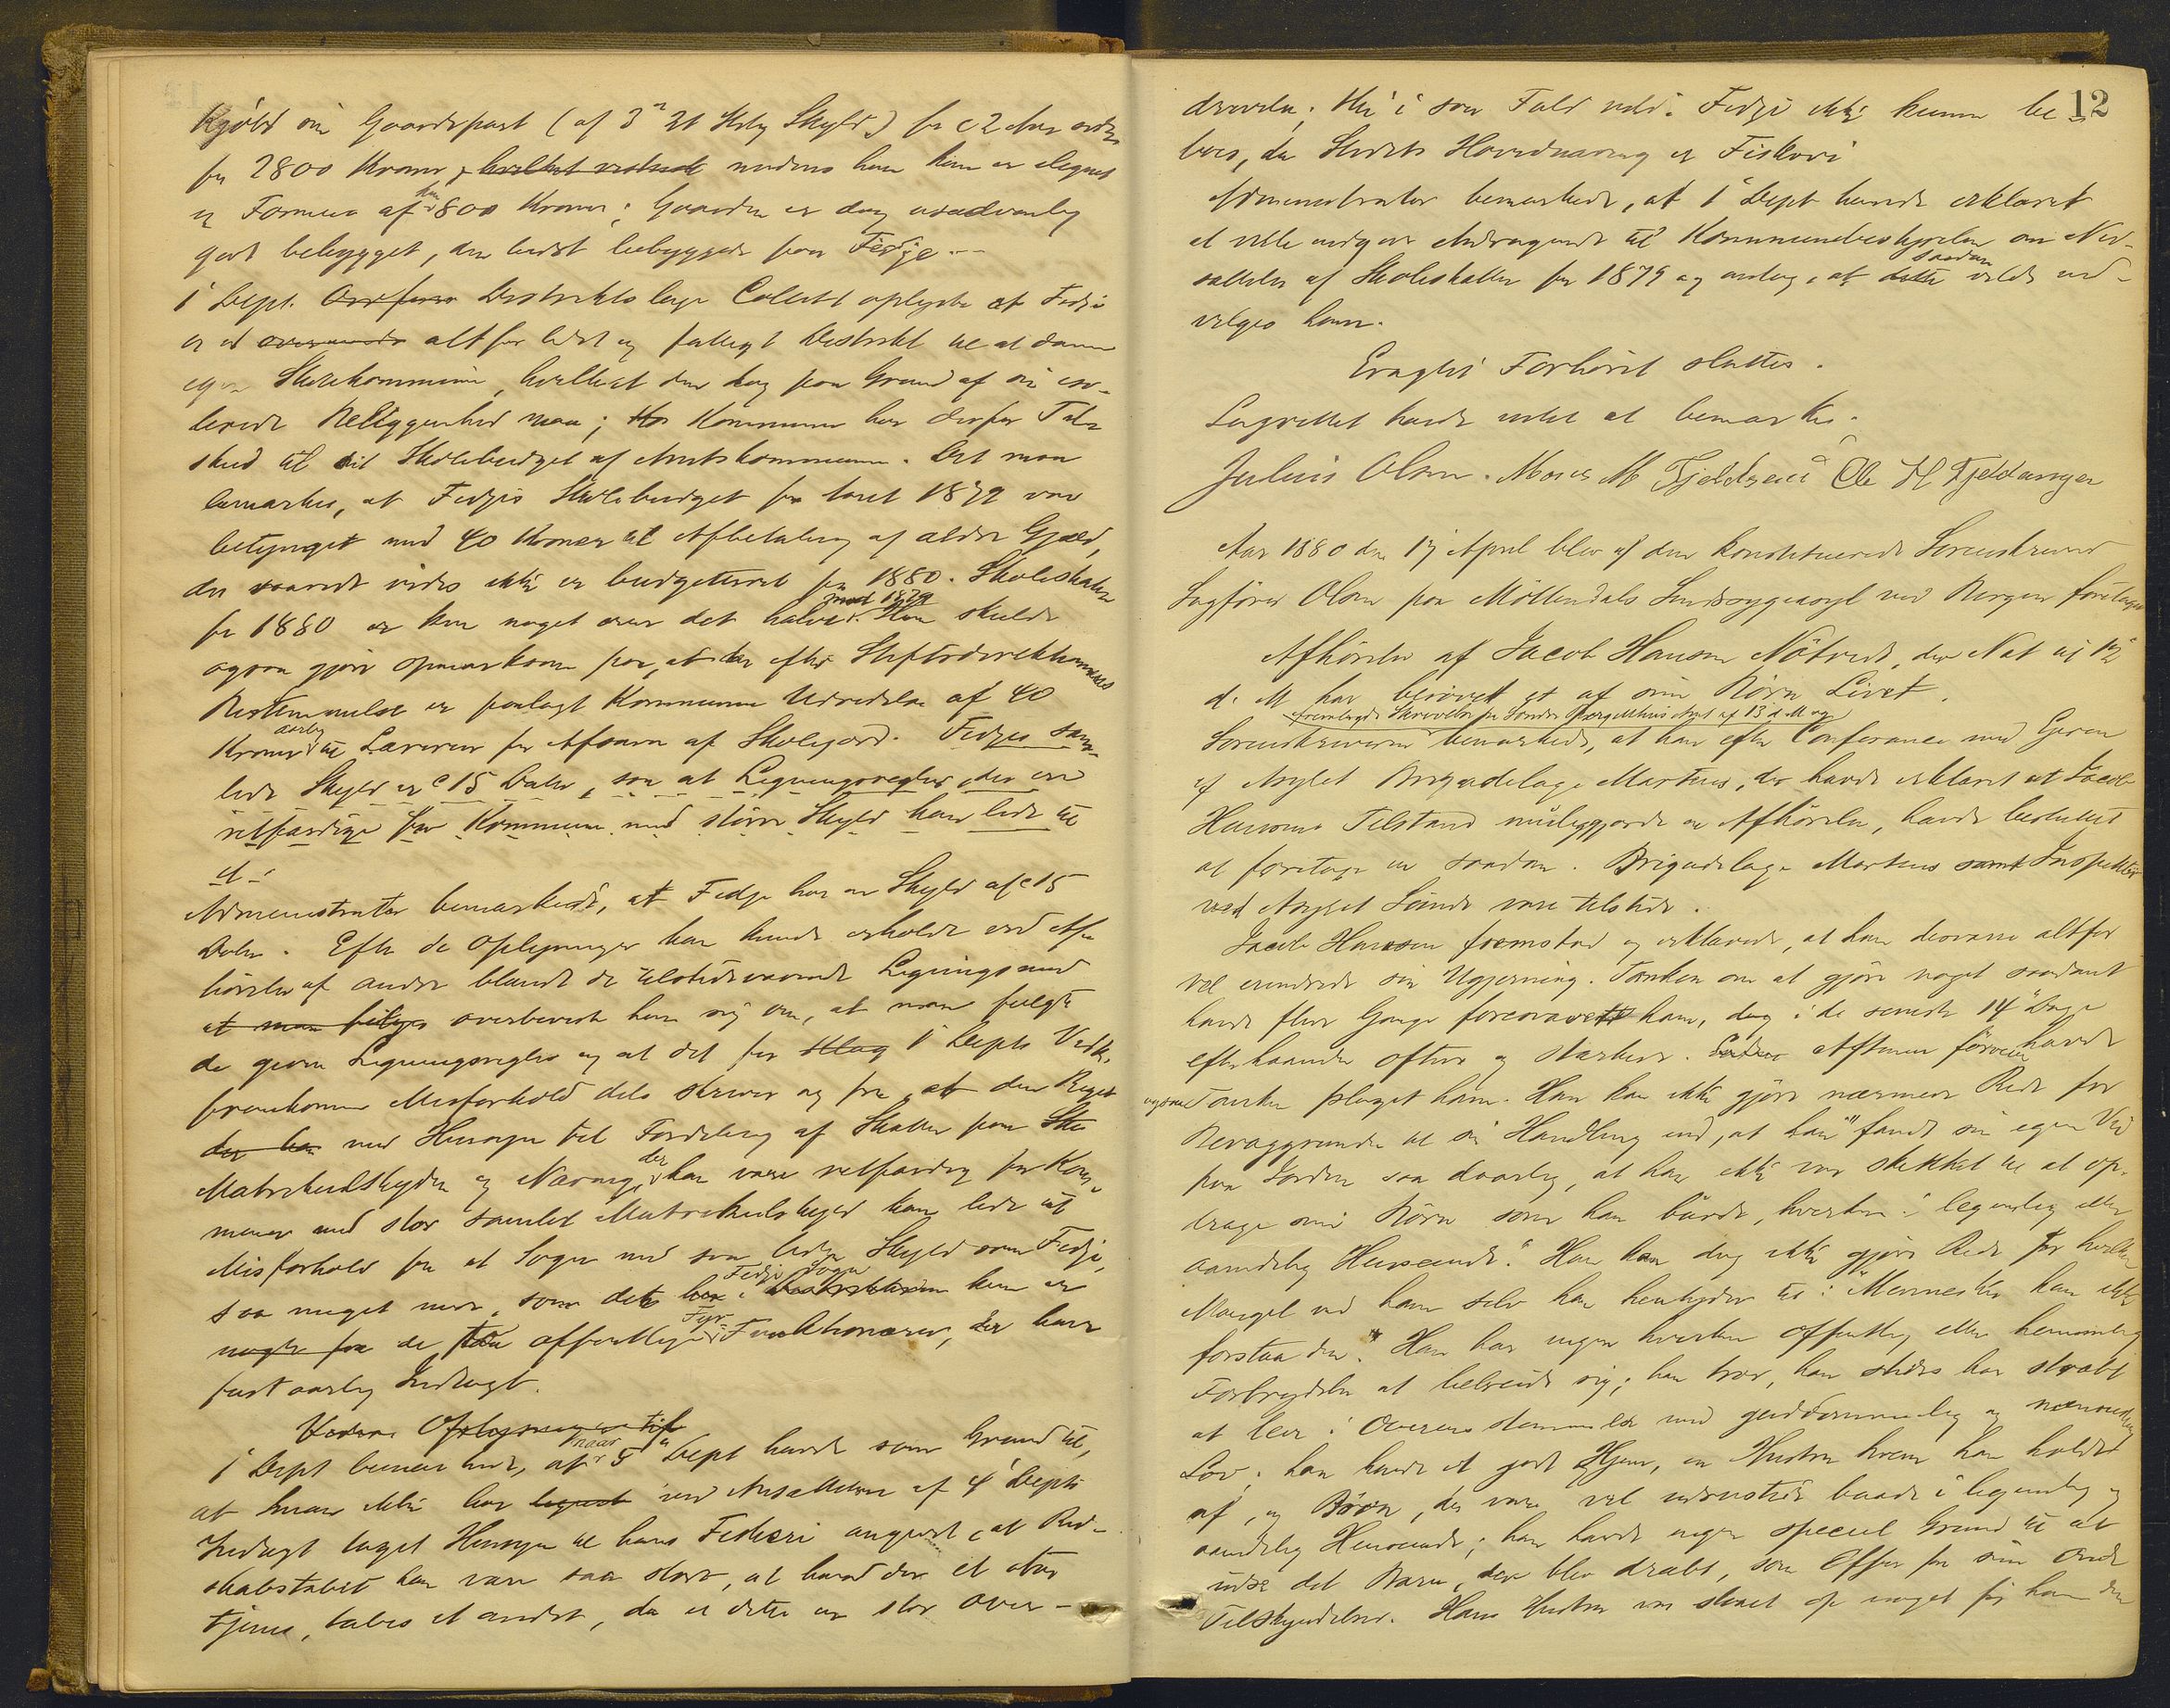 Kjöbt sin Gaardspart (af 3 21 Skylds Skyld) for c 2 Aar siden
for 2800 Kroner, hvilket medens han kun er lignet
en Formue af kun 800 Kroner; Gaarden er dog usædvanlig
godt bebygget, den bedst bebyggede paa Fedje.
1' Dept. Distriktslæge Collett oplyste at Fedje
er et altfor lidet og fattigt Distrikt til at danne
egen Skolekommune, hvilket den dog paa Grund af sin iso-
lerede Beliggenhed maa; Kommunen har derfor Til-
skud til sit Skolebudget af Amtskommunen. Det maa
bemærkes, at Fedjes Skolebudget for Aaret 1879 var
betynget med 40 Kroner til Afbetaling af ældre Gjæld,
der saavidt vides ikke er budgetteret for 1880. Skoleskatten
for 1880 er kun noget over det halve mod 1879. Han skulde
ogsaa gjøre opmærksom paa, at der efter Stiftsdirektionens
Bestemmelse er paalagt Kommunen Udredelse af 40
Kroner aarlig til Læreren for Afsavn af Skolejord. Fedjes sam-
lede Skyld er c 15 Daler, saa at Ligningsregler, der ere
retfærdige for Kommuner med större Skyld kan lede til
Administrator bemærkede, at Fedje har en Skyld af c 15
Daler. Efter de Oplysninger han havde erholdt ved Af-
hörelse af andre blandt de tilstedeværende Ligningsmænd
at man følger overbeviste han sig om, at man fulgte
de givne Ligningsregler og at det for 1' Depts Vedk.
fremkomne Misforhold dels skriver sig fra, at den Regel
der kan med Hensyn til Fordeling af Skatter paa
Matrikulskylden og Næring, der kan være retfærdig for Kom-
muner med stor samlet Matrikulskyld kan lede til
Misforhold for et Sogn med saa liden Skyld som Fedje,
saa meget mere, som det i Fedje Sogn kun er
nogle faa de faa offentlige Fyr-Funktionærer, der have
fast aarlig Indtægt.
Videre Oplysninger
1' Dept bemærkede, at naar 5' Dept havde som Grund til,
at man ikke har ved Ansættelsen af 4' Depts
Indtægt taget Hensyn til hans Fiskeri angivet, at Red-
skabstabet kan være saa stort, at hvad der et Aar
tjenes, tabes et andet, da er dette en stor Over-
12
drivelse; thi i saa Fald vilde Fedje ikke kunne be-
boes, da Stedets Hovednæring er Fiskeri
Administrator bemærkede, at 1' Dept havde erklæret
at ville indgive Andragende til Kommunebestyrelsen om Ned-
sættelse af Skoleskatten for 1879 og antog, at saadan vilde ind-
vilges ham.
Eragtet Forhöret sluttes.
Lagrettet havde intet at bemærke.
Julius Olsen. Moses M Fjeldseid Ole H Fjeldanger
Aar 1880 den 17 April blev af den konstituerede Sorenskriver
Sagförer Olsen paa Möllendals Sindssygeasyl ved Bergen foretaget
Afhörelse af Jacob Hansen Nötvedt, der Nat til 12
d. M har berövet et af sine Börn Livet.
Fremlagde Skrivelse fra Söndre Bergenhus Amt af 13 d. M og
Sorenskriveren bemærkede, at han efter Conferance med Eieren
af Asylet Brigadelæge Martens, der havde erklæret at Jacob
Hansens Tilstand muliggjorde en Afhörelse, havde besluttet
at foretage en saadan. Brigadelæge Martens samt Inspektör
ved Asylet Lunde vare tilstede.
Jacob Hansen fremstod og erklærede, at han desværre altfor
vel erindrede sin Ugjerning. Tanken om at gjöre noget saadant
havde flere Gange foresvævet ham, dog i de seneste 14 Dage
efterhaanden oftere og stærkere. Aftenen forinden havde
ogsaa Tanken plaget ham. Han kan ikke gjöre nærmere Rede for
Bevæggrunden til sin Handling end, at han "fandt sin egen Vei
paa Jorden saa daarlig, at han ikke var skikket til at op-
drage sine Börn som han burde, hverken i legemlig eller
aandelig Henseende." Han kan dog ikke gjöre Rede for hvilken
Mangel ved ham selv han henhyder til: "Mennesker kan ikke
forstaa den." Han har ingen hverken offentlig eller hemmelig
Forbrydelse at bebreide sig; han tror, han stedse har stræbt
at leve i Overensstemmelse med guddommelig og menneskelig
Lov; han havde et godt Hjem, en Hustru hvem han holdt
af, og Börn, der vare vel udrustede baade i legemlig og
aandelig Henseende; han havde ingen speciel Grund til at
det Barn, der blev dræbt, som Offer for sin onde
Tilskyndelse. Hans Hustru var staaet op noget för ham den